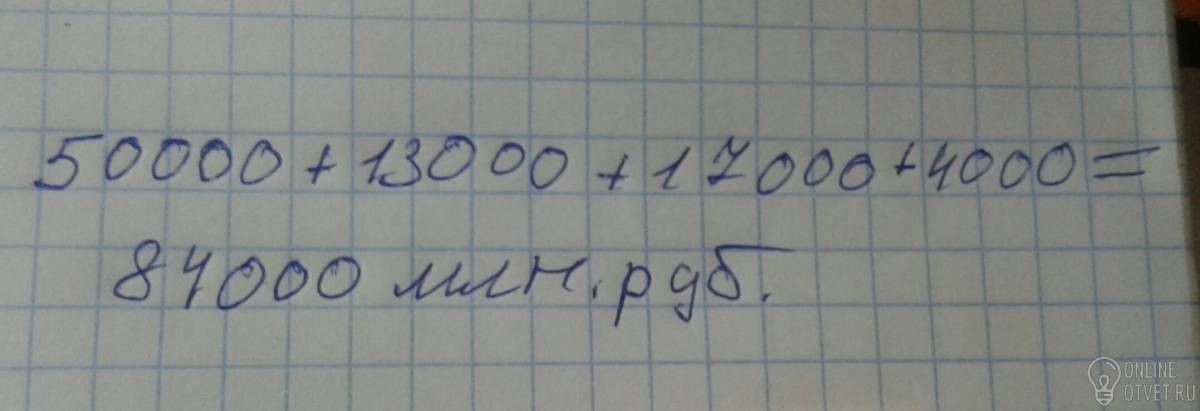 50000 + 13000 + 17000 + 4000 =
84000 млн. руб.
ONLINE
OTVET.RU